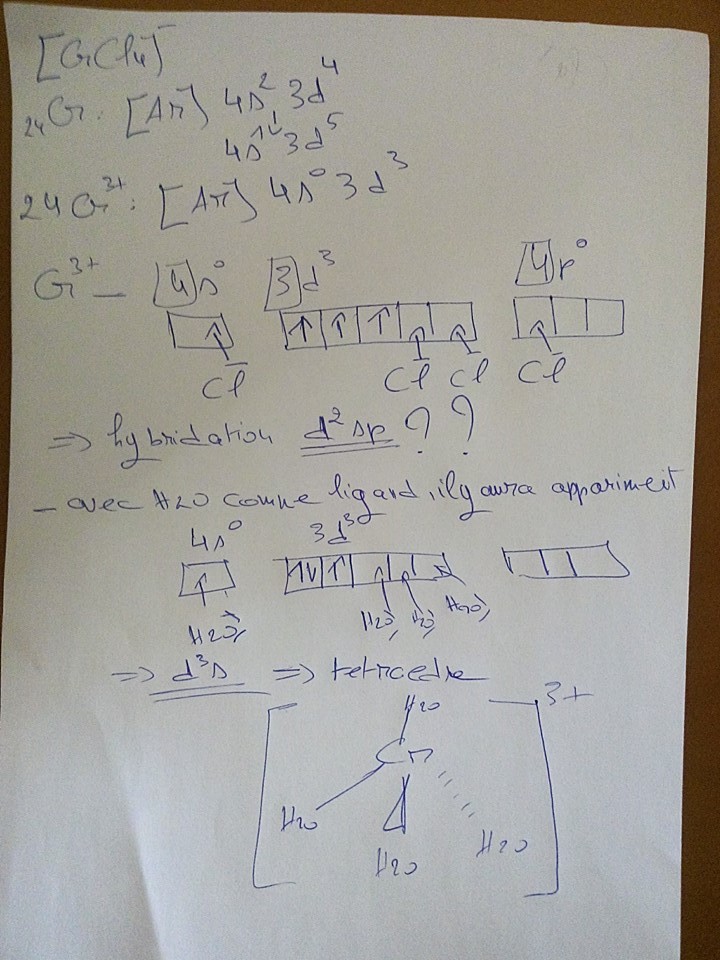 [CrCl4]⁻
24Cr: [Ar] 4s² 3d⁴
4s¹ 3d⁵
24Cr³⁺: [Ar] 4s⁰ 3d³
Cr³⁺ — 4s⁰ 3d³ 4p⁰
↑ ↑ ↑ ↑ ↑ ↑ ↑
Cl⁻ Cl⁻ Cl Cl⁻
⇒ hybridation d²sp ? ?
- avec H2O comme ligand, il y aura appariment
4s⁰ 3d³
↑ ↑↓ ↑
H2O, H2O, H2O, H2O,
⇒ d³s ⇒ tetroedre
H2O 3+
Cr
H2O
H2O H2O